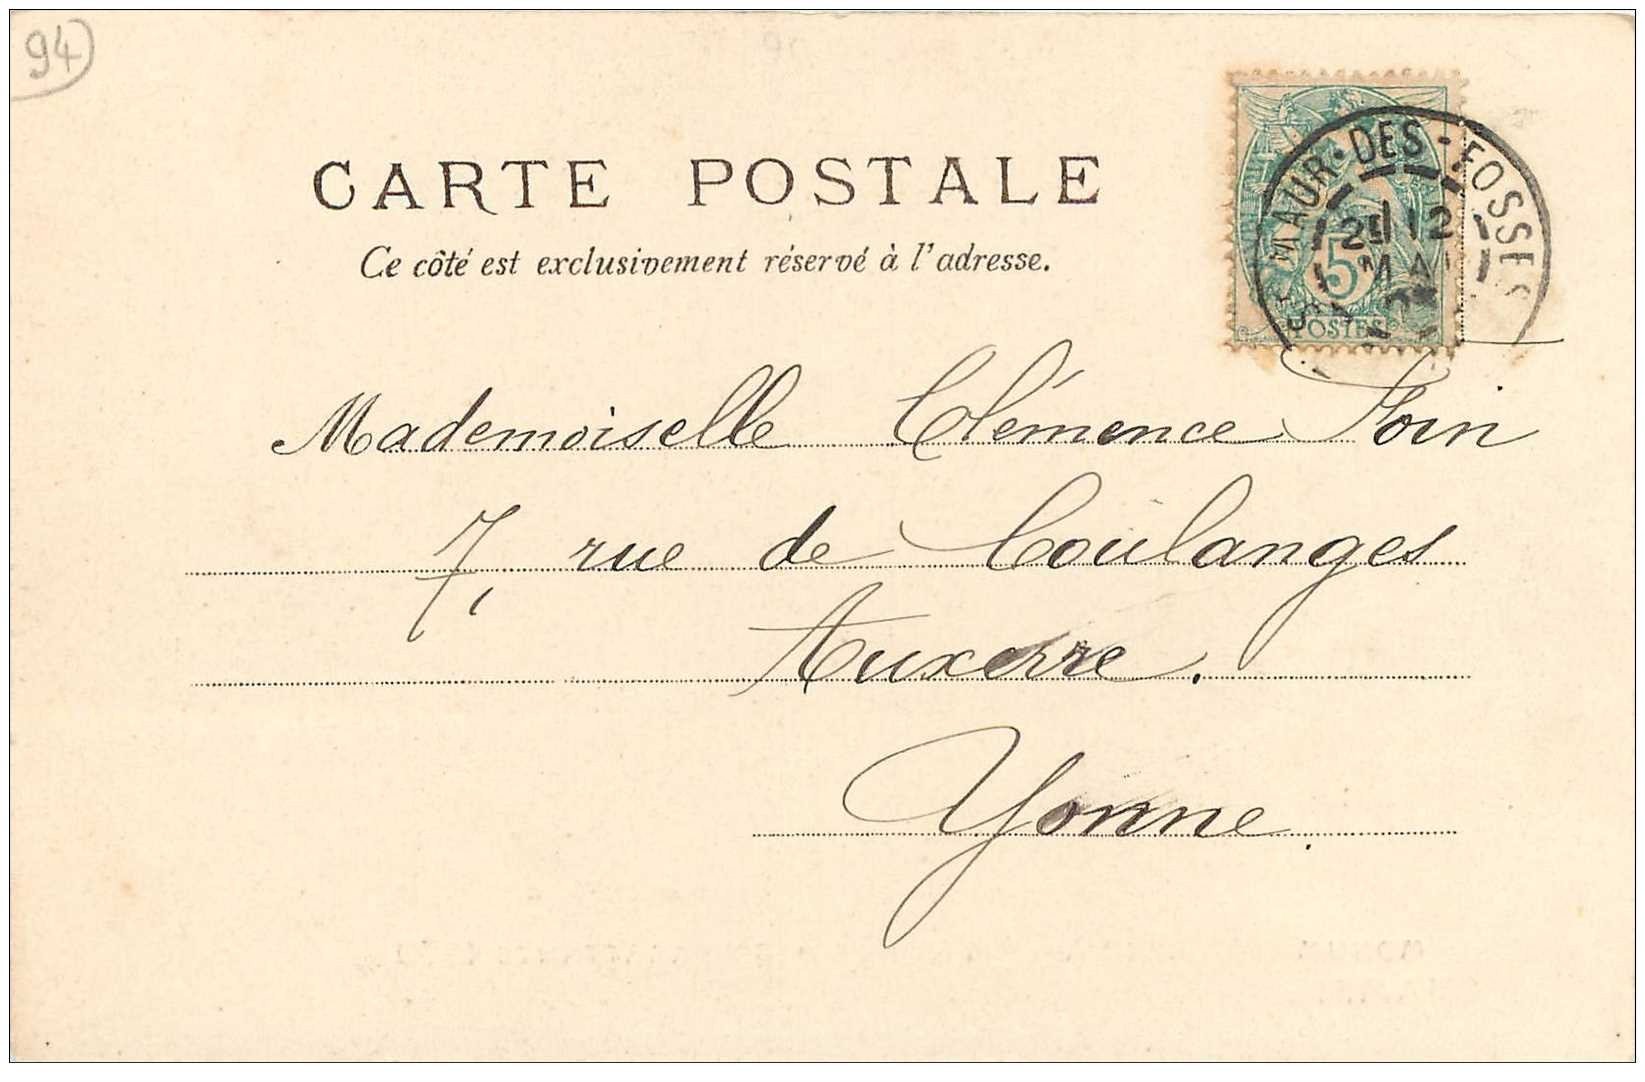 94
CARTE POSTALE
Ce côté est exclusivement réservé à l'adresse.
MAUR · DES - FOSSES
12
MAI
5
POSTES
Mademoiselle Clémence
7, rue de Coulanges
Auxerre.
Yonne.